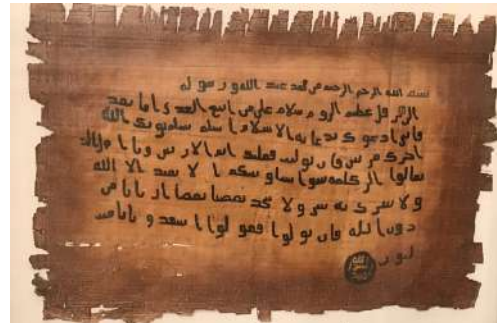 بسم الله الرحمن الرحيم من محمد عبد الله ورسوله
الى هرقل عظيم الروم سلام على من اتبع الهدى اما بعد
فانى ادعوك بدعاية الاسلام اسلم تسلم يؤتك الله
اجرك مرتين فان توليت فعليك اثم الاريسيين ويا اهل الكتاب
تعالوا الى كلمة سوا بيننا وبينكم ا لا نعبد الا الله
ولا نشرك به شيئا ولا يتخذ بعضنا بعضا اربابا من
دون الله فان تولوا فقولوا اشهدوا بانا مسلمون